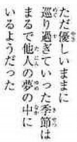 ただ優しいままに
巡り過ぎていった季節は
まるで他人の夢の中に
いるようだった